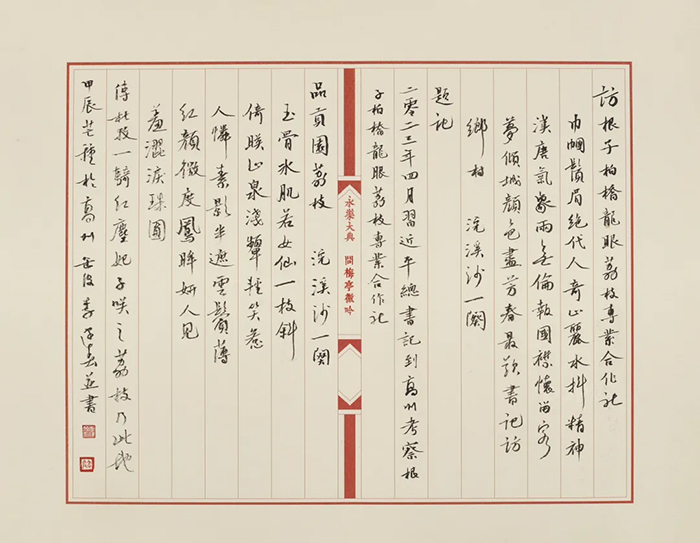 訪根子柏橋龍眼荔枝專業合作社
巾幗鬚眉絕代人奇山麗水抖精神
漢唐氣象兩無倫報國襟懷留客
夢傾城顏色盡芳春最歡書記訪
鄉村 浣溪沙一闋
題記
二零二三年四月習近平總書記到高州考察根
子柏橋龍眼荔枝專業合作社
永樂大典 問梅亭微吟
品貢園荔枝 浣溪沙一闋
玉骨冰肌若女仙一枝斜
倚映山泉淺顰輕笑惹
人憐素影半遮雲鬢薄
紅顏微度鳳眸妍人見
羞澀淚珠圓
傳杜牧一騎紅塵妃子咲之荔枝乃此地
甲辰芒種於高州 李 春並書